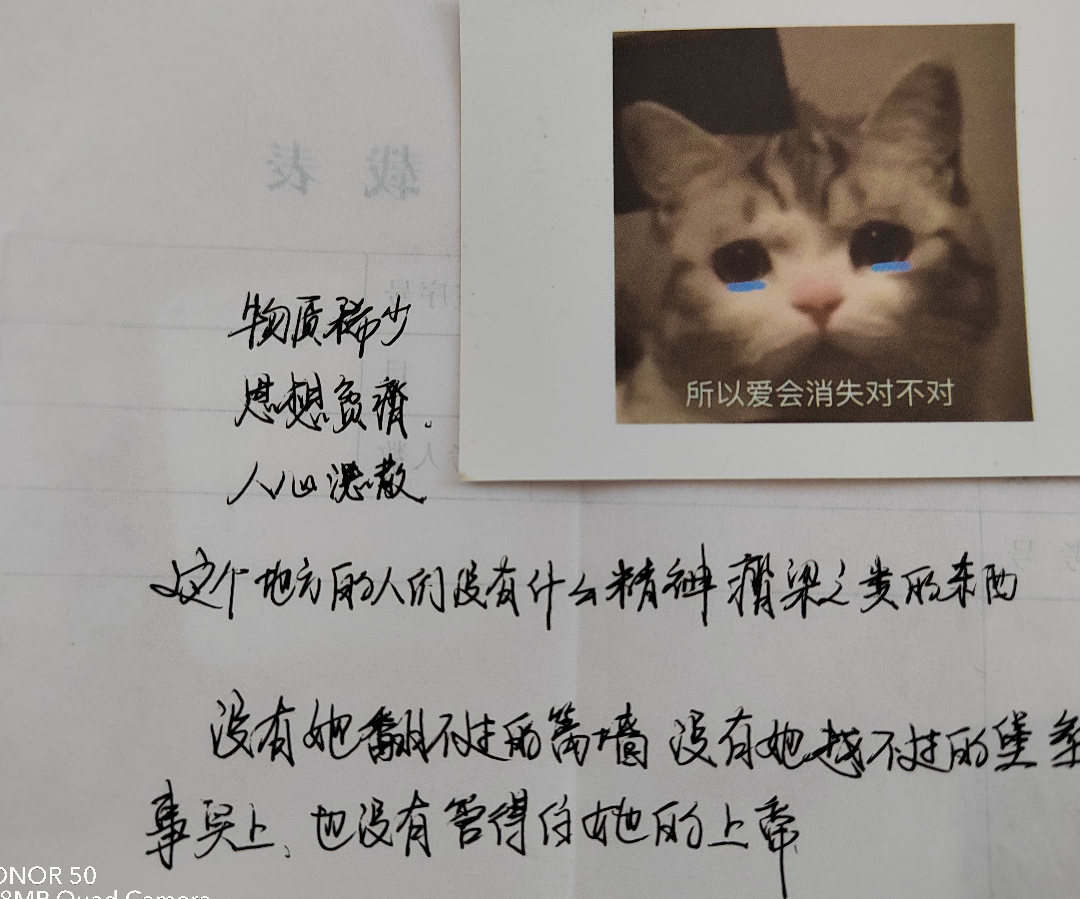 所以爱会消失对不对
载 表
序号
物质稀少
思想贫瘠.
人心涣散.
这个地方的人们没有什么精神脊梁之类的东西
没有她翻不过的篱墙 没有她越不过的堡垒
事实上、也没有管得住她的上帝
ONOR 50
8MP Quad Camera